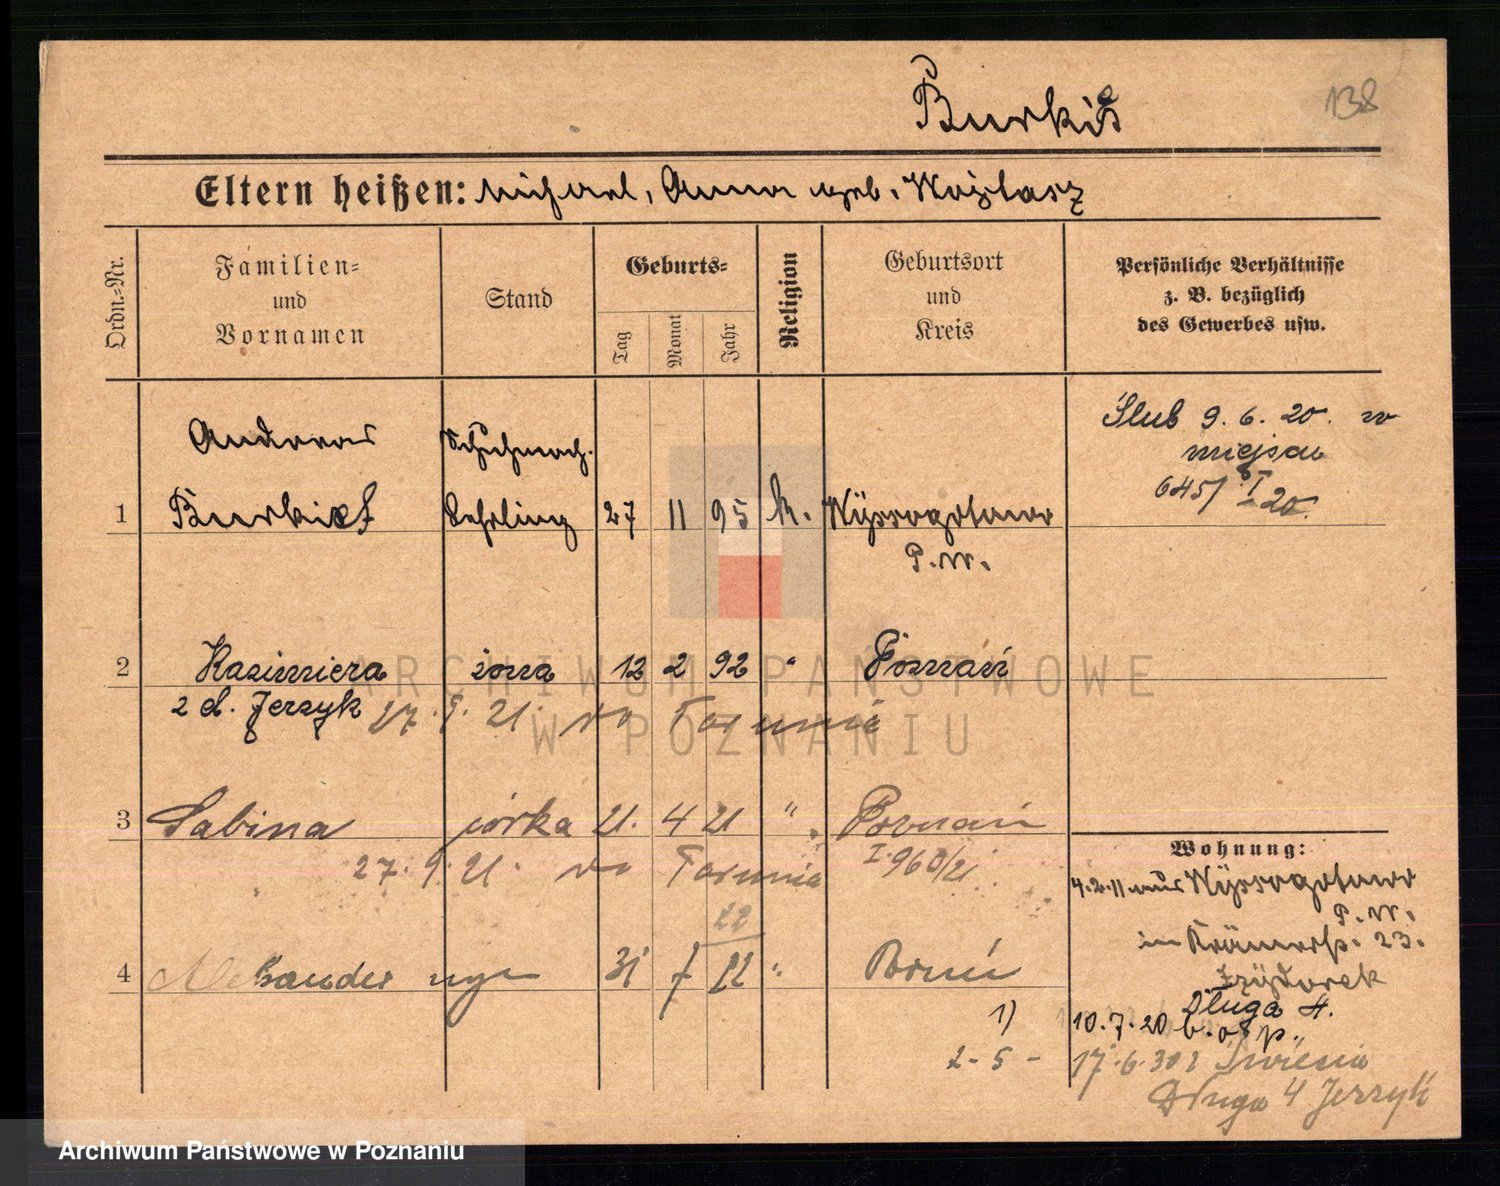 Burkis
138
Eltern heißen: Michael, Anna geb. Wojtasz
Ordn.-Nr.
Familien-
und
Vornamen
Stand
Geburts-
Tag
Monat
Jahr
Religion
Geburtsort
und
Kreis
Persönliche Verhältnisse
z. B. bezüglich
des Gewerbes usw.
Andreas Schuhmach.
1 Lehrling 27 11 95 k. Wyssogotowo
P. W.
Ślub 9. 6. 20. w
miejscu
645/I 20.
2 Kazimiera żona 12 2 92 " Poznań
z d. Jerzyk 27. 9. 21. do Torunia
3 Sabina córka 21. 4 21 " Poznań
27. 9. 21. do Torunia I. 960/21
22
4 Aleksander syn 31 7 22 "
1)
2 - 5 -
Wohnung:
4.2.11 aus Wyssogotowo
P. W.
in Krämerstr. 23.
Długa 4.
10.7.20 b. p.
17.6.30
Długa 4 Jerzyk
ARCHIWUM PAŃSTWOWE
W POZNANIU
Archiwum Państwowe w Poznaniu